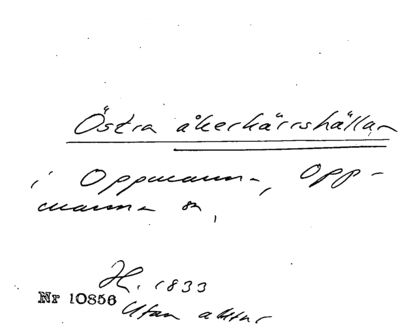 Östra åkerkärrshällan
i Oppmanna, Opp-
manna sn,
H. 1833
Nr 10856
Utan aktnr